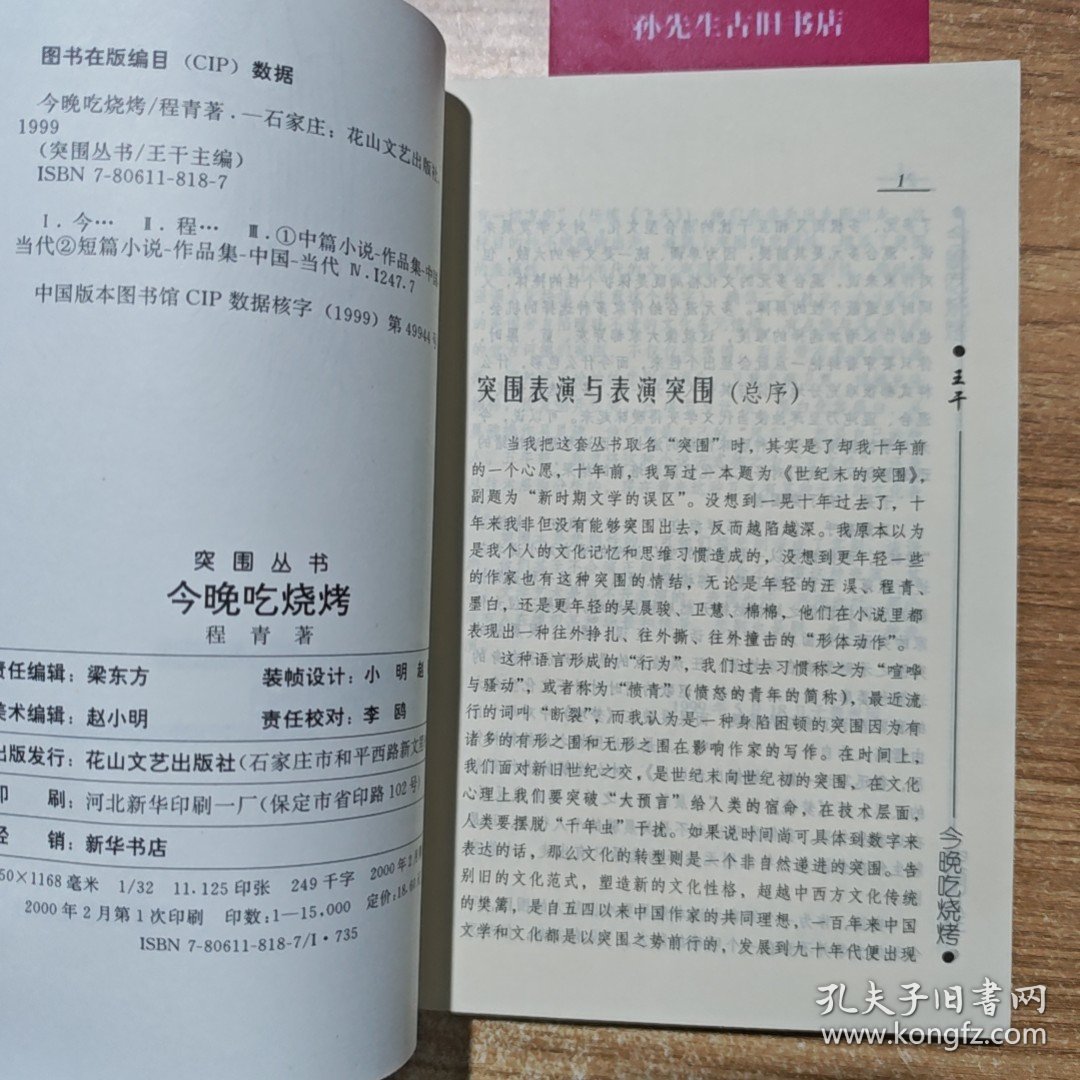 孙先生古旧书店
图书在版编目（CIP）数据
今晚吃烧烤/程青著.—石家庄：花山文艺出版社，
1999
（突围丛书/王干主编）
ISBN 7-80611-818-7
Ⅰ.今… Ⅱ.程… Ⅲ.①中篇小说-作品集-中国-
当代②短篇小说-作品集-中国-当代 Ⅳ.I247.7
中国版本图书馆 CIP 数据核字（1999）第 49944 号
突围丛书
今晚吃烧烤
程青 著
责任编辑：梁东方 装帧设计：小 明 赵
美术编辑：赵小明 责任校对：李 鸥
出版发行：花山文艺出版社（石家庄市和平西路新文里
印 刷：河北新华印刷一厂（保定市省印路102号）
经 销：新华书店
50×1168毫米 1/32 11.125印张 249千字 2000年2月第
2000年2月第1次印刷 印数：1—15,000 定价：18.60
ISBN 7-80611-818-7/I·735
1
王干
突围表演与表演突围（总序）
当我把这套丛书取名“突围”时，其实是了却我十年前
的一个心愿，十年前，我写过一本题为《世纪末的突围》，
副题为“新时期文学的误区”。没想到一晃十年过去了，十
年来我非但没有能够突围出去，反而越陷越深。我原本以为
是我个人的文化记忆和思维习惯造成的，没想到更年轻一些
的作家也有这种突围的情结，无论是年轻的汪淏、程青、
墨白，还是更年轻的吴晨骏、卫慧、棉棉，他们在小说里都
表现出一种往外挣扎、往外撕、往外撞击的“形体动作”。
这种语言形成的“行为”，我们过去习惯称之为“喧哗
与骚动”，或者称为“愤青”（愤怒的青年的简称），最近流
行的词叫“断裂”，而我认为是一种身陷困顿的突围因为有
诸多的有形之围和无形之围在影响作家的写作。在时间上，
我们面对新旧世纪之交，是世纪末向世纪初的突围，在文化
心理上我们要突破“大预言”给人类的宿命，在技术层面，
人类要摆脱“千年虫”干扰。如果说时间尚可具体到数字来
表达的话，那么文化的转型则是一个非自然递进的突围。告
别旧的文化范式，塑造新的文化性格，超越中西方文化传统
的樊篱，是自五四以来中国作家的共同理想，一百年来中国
文学和文化都是以突围之势前行的，发展到九十年代便出现
今晚吃烧烤
孔夫子旧书网
www.kongfz.com